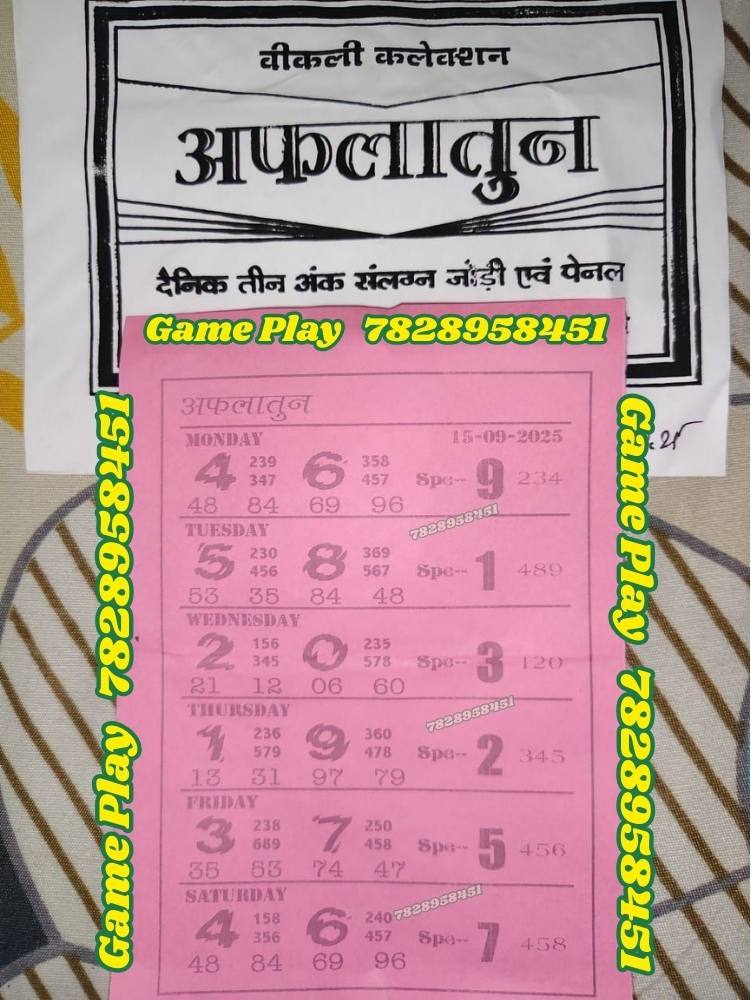 वीकली कलेक्शन
अफलातुन
दैनिक तीन अंक संलग्न जोड़ी एवं पेनल
Game Play 7828958451
अफलातुन
MONDAY 15-09-2025
4 239 347 6 358 457 Spe-- 9 234
48 84 69 96
7828958451
TUESDAY
5 230 456 8 369 567 Spe-- 1 489
53 35 84 48
WEDNESDAY
2 156 345 0 235 578 Spe-- 3 120
21 12 06 60
7828958451
THURSDAY
1 236 579 9 360 478 Spe-- 2 345
13 31 97 79
FRIDAY
3 238 689 7 250 458 Spe-- 5 456
35 53 74 47
SATURDAY
7828958451
4 158 356 6 240 457 Spe-- 7 458
48 84 69 96
Game Play 7828958451
Game Play 7828958451